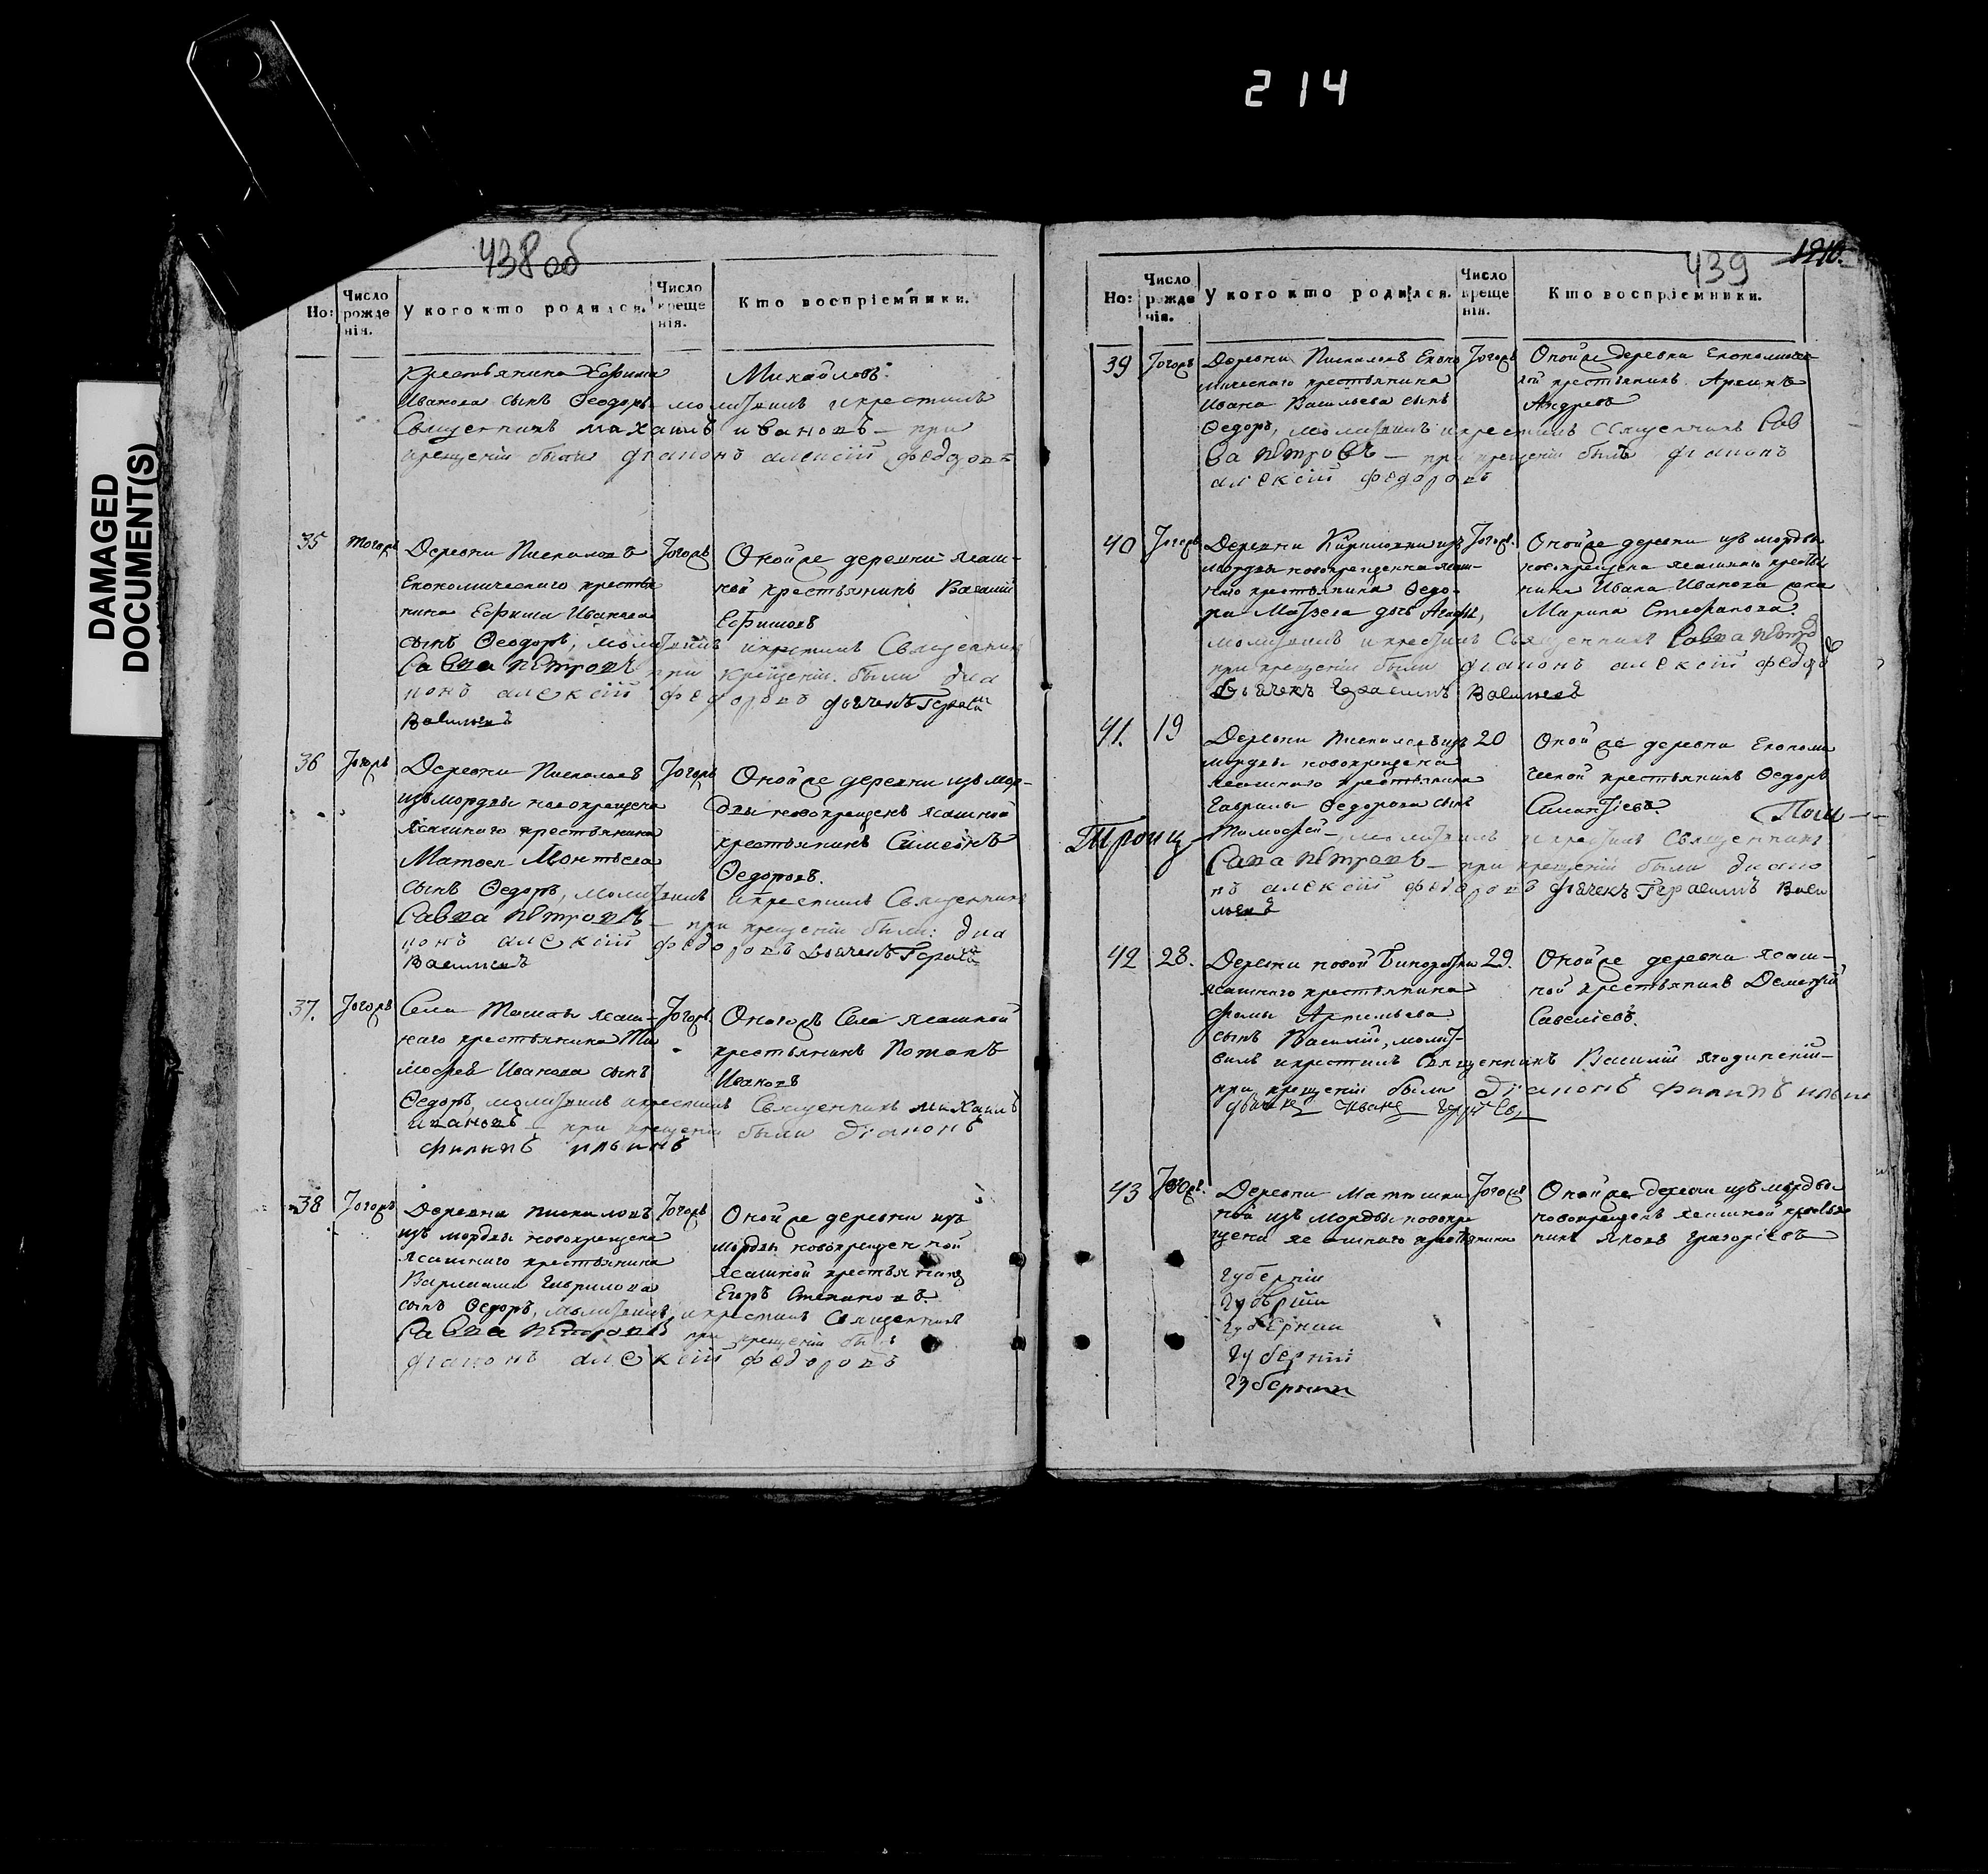 214
DAMAGED
DOCUMENT(S)
438 об
Но:
Число рожденія.
У кого кто родился.
Число крещенія.
Кто воспріемники.
крестьянина Ефима
Иванова сынъ Ѳеодоръ молитвилъ и крестилъ
Священникъ михаилъ ивановъ — при
крещеніи были діаконъ алексій федоровъ
Михайловъ.
35
Тогожъ
Деревни Пискаловъ
Економическаго крестья
нина Ефима Иванова
сынъ Ѳеодоръ, молитвилъ и крестилъ Священникъ
Савва Петровъ при крещеніи были диа
конъ алексій федоровъ дьячекъ Гераси
Васильевъ
Тогожъ
Оной же деревни ясаш-
ной крестьянинъ Василій
Ефимовъ
36
Тогожъ
Деревни Пискаловъ
изъ мордвы новокрещена
ясашнаго крестьянина
Матвея
сынъ Ѳедоръ, молитвилъ и крестилъ Священникъ
Савва Петровъ — при крещеніи были: диа
конъ алексій федоровъ дьячекъ Гераси
Васильевъ
Тогожъ
Оной же деревни изъ мор-
двы новокрещенъ ясашной
крестьянинъ Симеонъ
Ѳедоровъ.
37.
Тогожъ
Села ясаш-
наго крестьянина Ти
мофея Иванова сынъ
Ѳедоръ молитвилъ и крестилъ Священникъ михаилъ
ивановъ — при крещеніи были діаконъ
филипъ ильинъ
Тогожъ.
Оногожъ Села ясашной
крестьянинъ Потапъ
Ивановъ
38
Тогожъ
Деревни пискаловъ
изъ мордвы новокрещена
ясашнаго крестьянина
Варлаама Гаврилова
сынъ Ѳедоръ, молитвилъ и крестилъ Священникъ
Савва Петровъ при крещеніи былъ
діаконъ алексій федоровъ
Тогожъ
Оной же деревни изъ
мордвы новокрещенной
ясашной крестьянинъ
Егоръ Степановъ.
439
1210.
Но:
Число рожденія.
У кого кто родился.
Число крещенія.
Кто воспріемники.
39
Тогожъ
Деревни Пискаловъ Еконо
мическаго крестьянина
Ивана Васильева сынъ
Ѳедоръ, молитвилъ и крестилъ Священникъ Сав
ва Петровъ — при крещеніи былъ діаконъ
алексій федоровъ
Тогожъ
Оной же деревни Економичес
кой крестьянинъ
Андреевъ
40
Тогожъ
Деревни Кириловки изъ
мордвы новокрещенна ясаш-
наго крестьянина Ѳедо-
ра Матвеева дочь
молитвилъ и крестилъ Священникъ Савва Петро
при крещеніи были діаконъ алексій федоро
дьячекъ Герасимъ Васильевъ
Тогожъ.
Оной же деревни изъ мордвы
новокрещена ясашнаго крестья
нина Ивана Иванова жена
Марина Стефанова.
41.
19
Деревни Пискаловъ изъ
мордвы новокрещена
ясашнаго крестьянина
Гаврилы Ѳедорова сынъ
Тимофей — молитвилъ и крестилъ Священникъ
Савва Петровъ — при крещеніи были диако
нъ алексій федоровъ дьячекъ Герасимъ Васи
льевъ
20
Оной же деревни Економи
ческой крестьянинъ Ѳедоръ
Троиц
42
28.
Деревни новой
ясашнаго крестьянина
фомы Артемьева
сынъ Василій, молит-
вилъ и крестилъ Священникъ Василій
при крещеніи были діаконъ филипъ ильин
29.
Оной же деревни ясаш-
ной крестьянинъ Дементій
Савеліевъ.
43
Тогожъ.
Деревни Матюшки
ной изъ Мордвы новокре
щена ясашнаго крестьянина
Тогожъ
Оной же деревни изъ мордвы
новокрещенъ ясашной крестья
нинъ Яковъ Григоріевъ
Губерніи
Губерніи
Губернии
Губерніи
Губернии